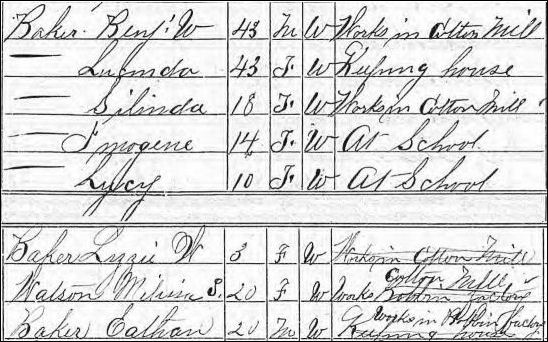 Baker Benj. W 43 M W Works in Cotton Mill
— Lucinda 43 F. W Keeping house
— Silinda 18 F. W Works in Cotton Mill
— Imogene 14 F. W At School
— Lucy 10 F. W At School
Baker Lizzie W 3 F W Works in Cotton Mill
Watson Milissa S. 20 F W Works Cotton Mill Bobbin factory
Baker Ealthan 20 M W Works in Bobbin factory Keeping house